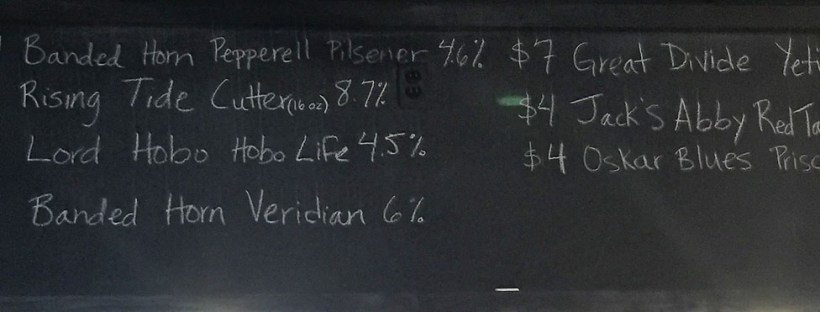 Banded Horn Pepperell Pilsener 4.6%
Rising Tide Cutter (16 oz) 8.7%
Lord Hobo Hobo Life 4.5%
Banded Horn Veridian 6%
$7 Great Divide Yeti
$4 Jack's Abby Red To
$4 Oskar Blues Prisc